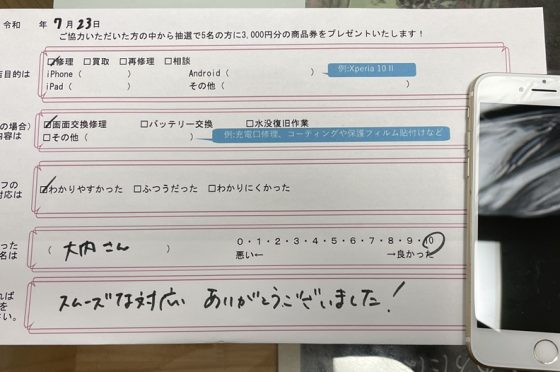 令和 年 7月23日
ご協力いただいた方の中から抽選で5名の方に3,000円分の商品券をプレゼントいたします！
☑修理 □買取 □再修理 □相談
店目的は
iPhone（ ） Android（ ） 例:Xperia 10 II
iPad（ ） その他（ ）
の場合） ☑画面交換修理 □バッテリー交換 □水没復旧作業
内容は □その他（ 例:充電口修理、コーティングや保護フィルム貼付けなど
フの
対応は ☑わかりやすかった □ふつうだった □わかりにくかった
った
名は （ 大内さん ） 0・1・2・3・4・5・6・7・8・9・10
悪い← →良かった
れば
を
さい。 スムーズな対応 ありがとうございました！